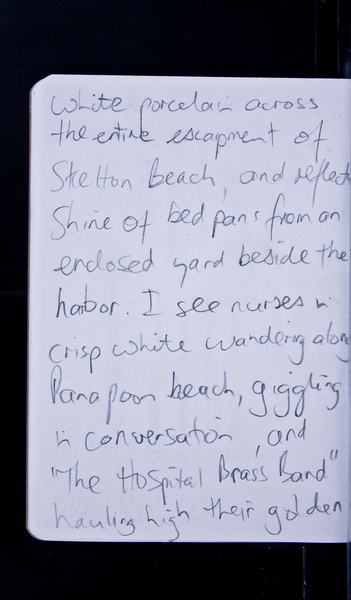 White porcelain across
the entire escarpment of
Skelton beach, and reflect
Shine of bed pans from an
enclosed yard beside the
harbor. I see nurses in
crisp white wandering along
Panapoon beach, giggling
in conversation, and
"The Hospital Brass Band"
hauling high their golden